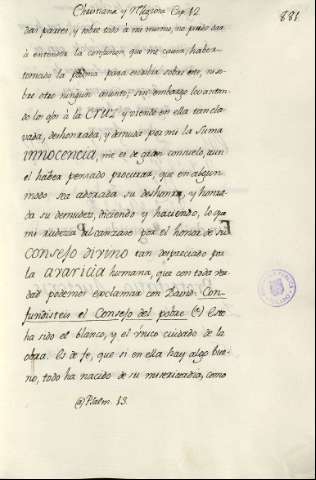 Christiana y Mistica Cap. 12
881
das partes, y sobre todo à mi mismo, no puedo dar
à entender la confusion, que me causa, haber
tomado la pluma para escribir sobre este, ni so-
bre otro ningun asunto; sin embargo levantan-
do los ojos à la CRUZ, y viendo en ella tan cla-
vada, deshonrada, y desnuda por mi la suma
INNOCENCIA, me es de gran consuelo, aun
el haber pensado procurar, que en algun
modo sea adorada su deshonra, y honra-
da su desnudez, diciendo y haciendo, lo que
mi rudeza alcanzare por el honor de su
CONSEJO DIVINO tan despreciado por
la AVARICIA humana, que con toda ver-
dad podemos exclamar con David: Con-
fundisteis el Consejo del pobre (a) Esto
ha sido el blanco, y el unico cuidado de la
obra. Es de fe, que si en ella hay algo bue-
no, todo ha nacido de su misericordia, como
(a) Psalm. 13.